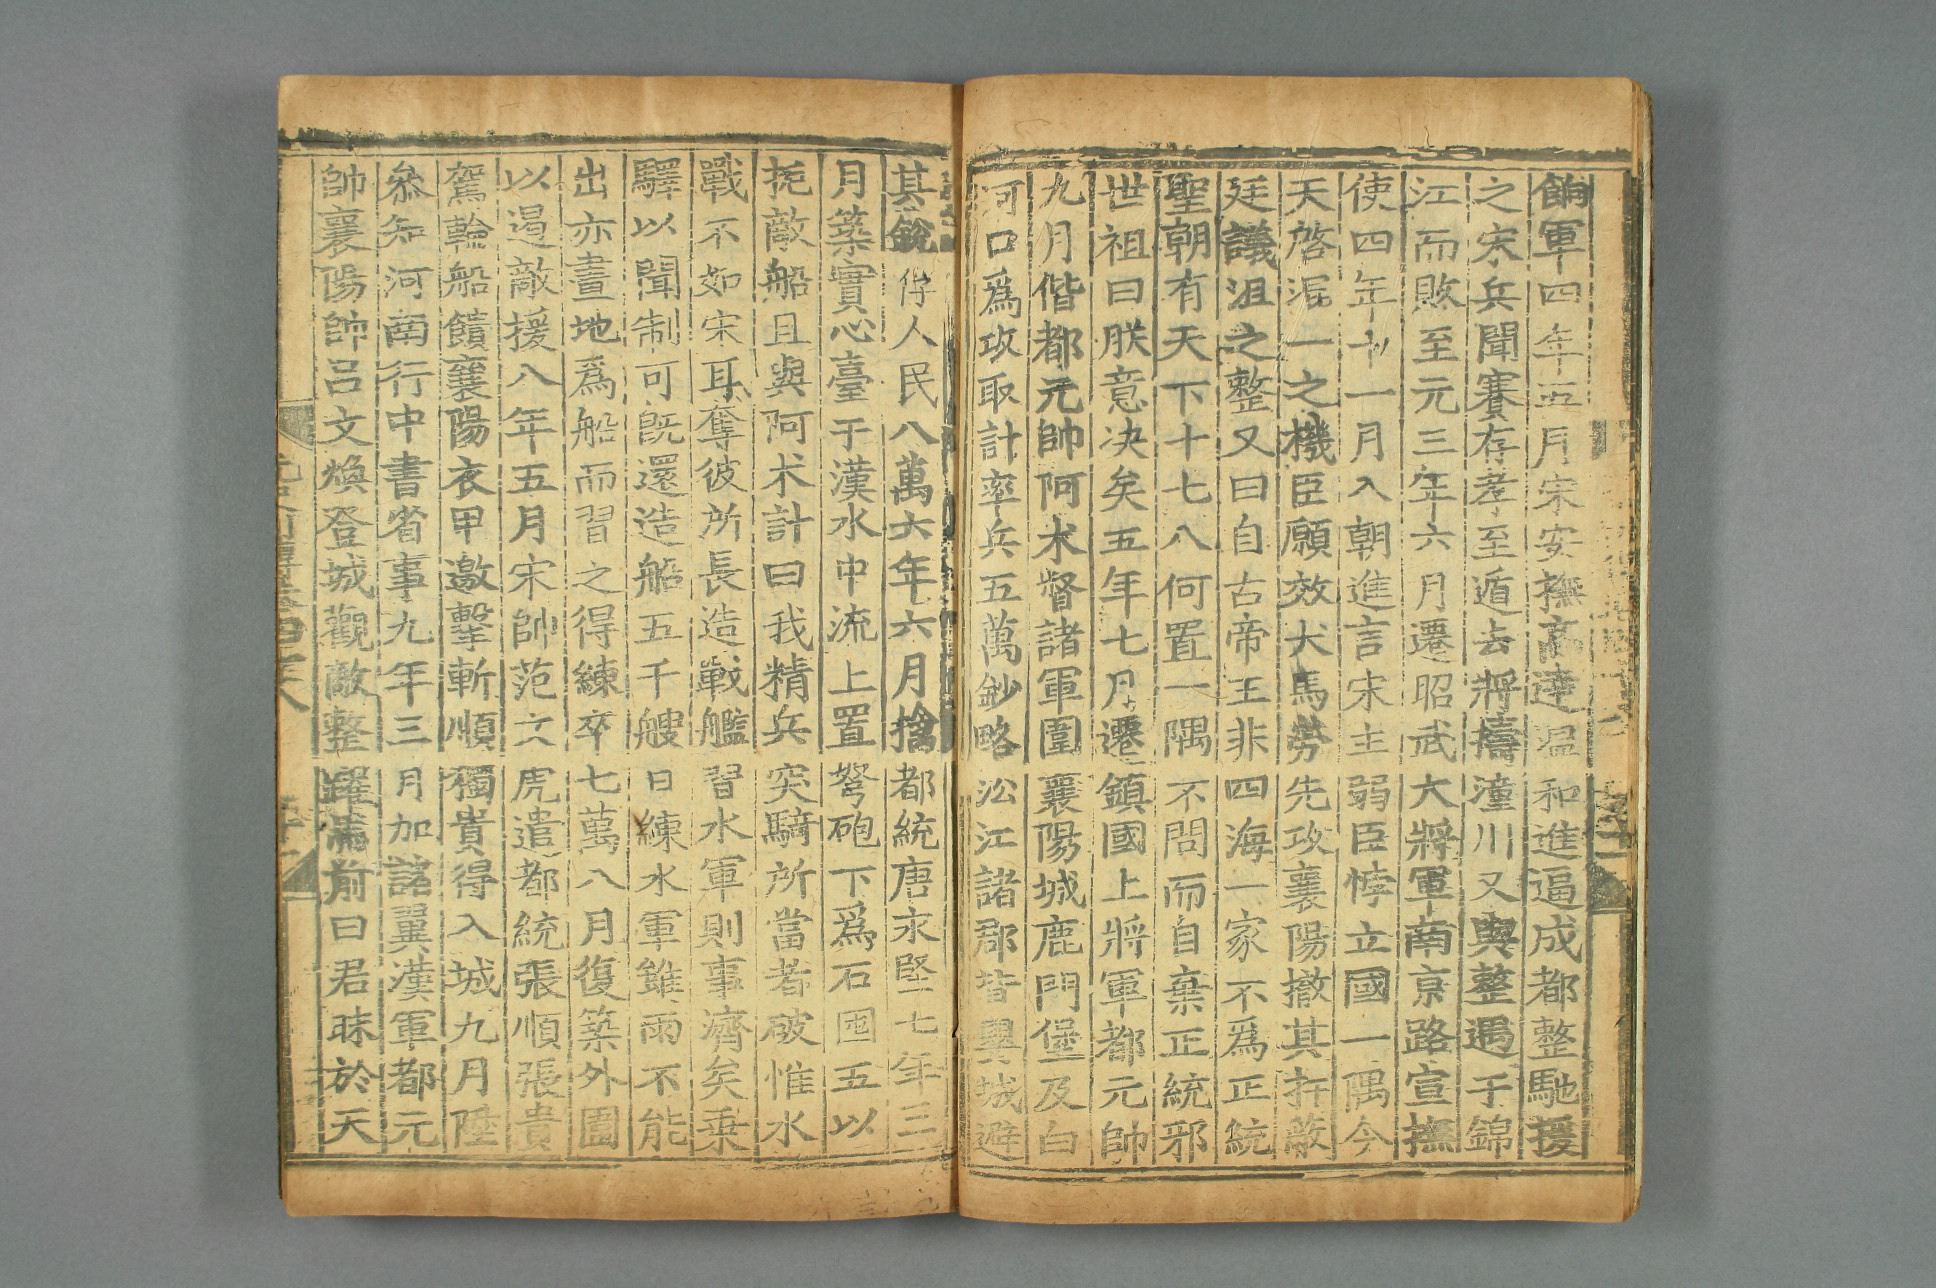 餉軍四年五月宋安撫高達溫和進逼成都整馳援
之宋兵聞賽存孝至遁去將擣潼川又與整遇于錦
江而敗至元三年六月遷昭武大將軍南京路宣撫
使四年十一月入朝進言宋主弱臣悖立國一隅今
天啓混一之機臣願效犬馬勞先攻襄陽撤其扞蔽
廷議沮之整又曰自古帝王非四海一家不爲正統
聖朝有天下十七八何置一隅不問而自棄正統邪
世祖曰朕意决矣五年七月遷鎮國上將軍都元帥
九月偕都元帥阿朮督諸軍圍襄陽城鹿門堡及白
河口爲攻取計率兵五萬鈔略㳂江諸郡皆嬰城避
其銳俘人民八萬六年六月擒都統唐永堅七年三
月築實心臺于漢水中流上置弩砲下爲石囤五以
扼敵船且與阿朮計曰我精兵突騎所當者破惟水
戰不如宋耳奪彼所長造戰艦習水軍則事濟矣乗
驛以聞制可既還造船五千艘日練水軍雖雨不能
出亦畫地爲船而習之得練卒七萬八月復築外圍
以遏敵援八年五月宋帥范文虎遣都統張順張貴
駕輪船饋襄陽衣甲邀擊斬順獨貴得入城九月陞
叅知河南行中書省事九年三月加諸翼漢軍都元
帥襄陽帥呂文煥登城觀敵整躍馬前曰君昧於天